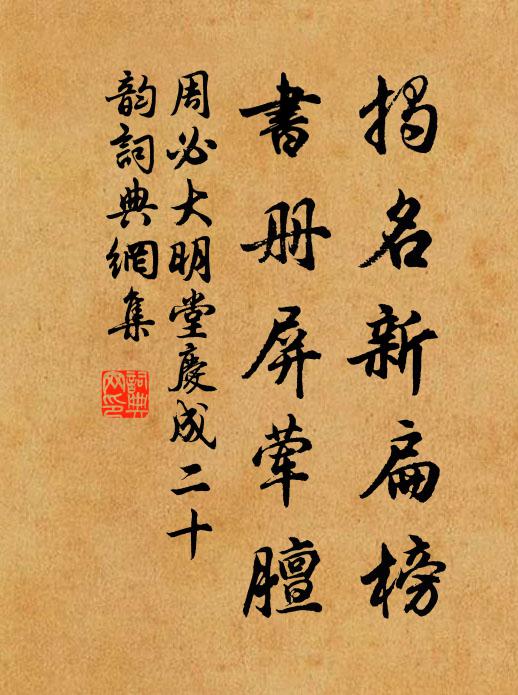 揭名新扁榜
書册屏荤膻
周必大明堂慶成二十
韵詞典網集
詞典
网印